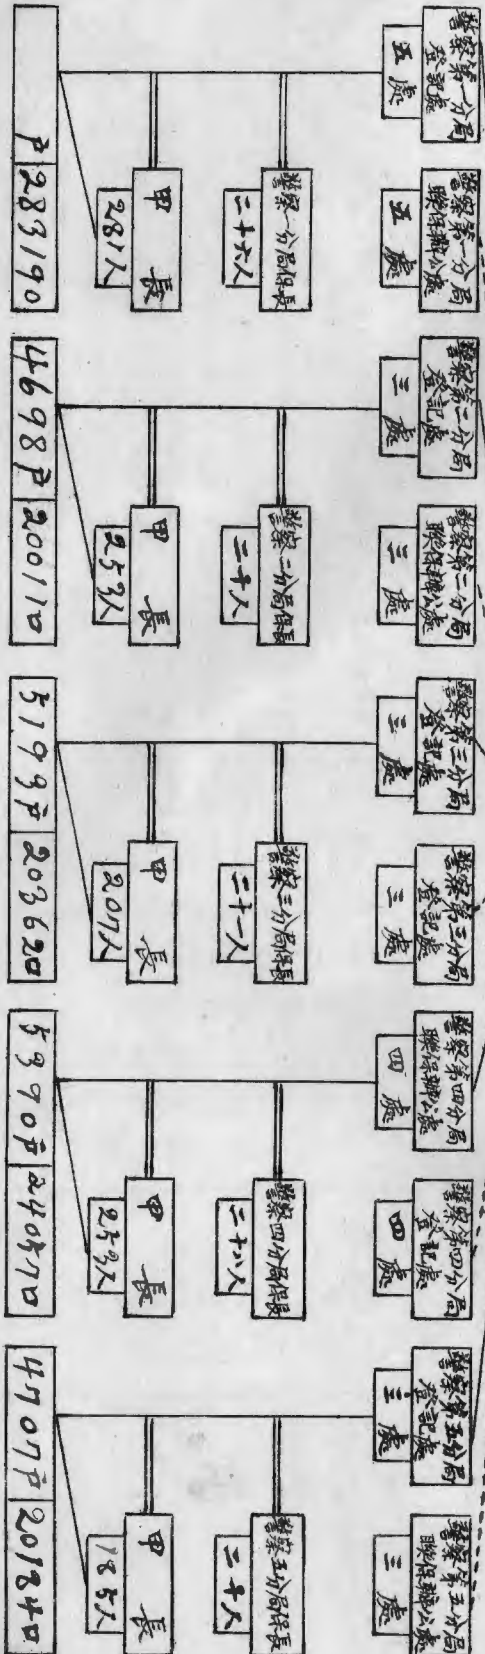 警察第一分局
登記處
五處
警察第一分局
聯保辦公處
五處
警察一分局保長
二十六人
甲長
281人
戶 28319口
警察第二分局
登記處
三處
警察第二分局
聯保辦公處
三處
警察二分局保長
二十人
甲長
253人
4698戶 20011口
警察第三分局
登記處
三處
警察第三分局
登記處
三處
警察三分局保長
二十一人
甲長
207人
5193戶 20362口
警察第四分局
聯保辦公處
四處
警察第四分局
登記處
四處
警察四分局保長
二十八人
甲長
253人
5390戶 24057口
警察第五分局
登記處
三處
警察第五分局
聯保辦公處
三處
警察五分局保長
二十人
甲長
185人
4707戶 20184口